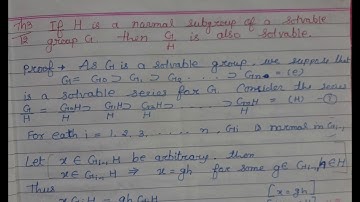 Th3 If H is a normal subgroup of a solvable
group G. then G/H is also solvable.
Proof → As G is a solvable group. we suppose that
G = G0 ⊃ G1 ⊃ G2 . . . . . ⊃ Gn = (e)
is a solvable series for G. Consider the series
G/H = G0H/H ⊃ G1H/H ⊃ G2H/H ⊃ . . . . ⊃ GnH/H = (H) -①
For each i = 1, 2, 3, . . . . . n, Gi is normal in Gi-1,
Let x ∈ Gi-1 H be arbitrary. then
x ∈ Gi-1 H ⇒ x = gh for some g ∈ Gi-1, h ∈ H
Thus
[x = gh]